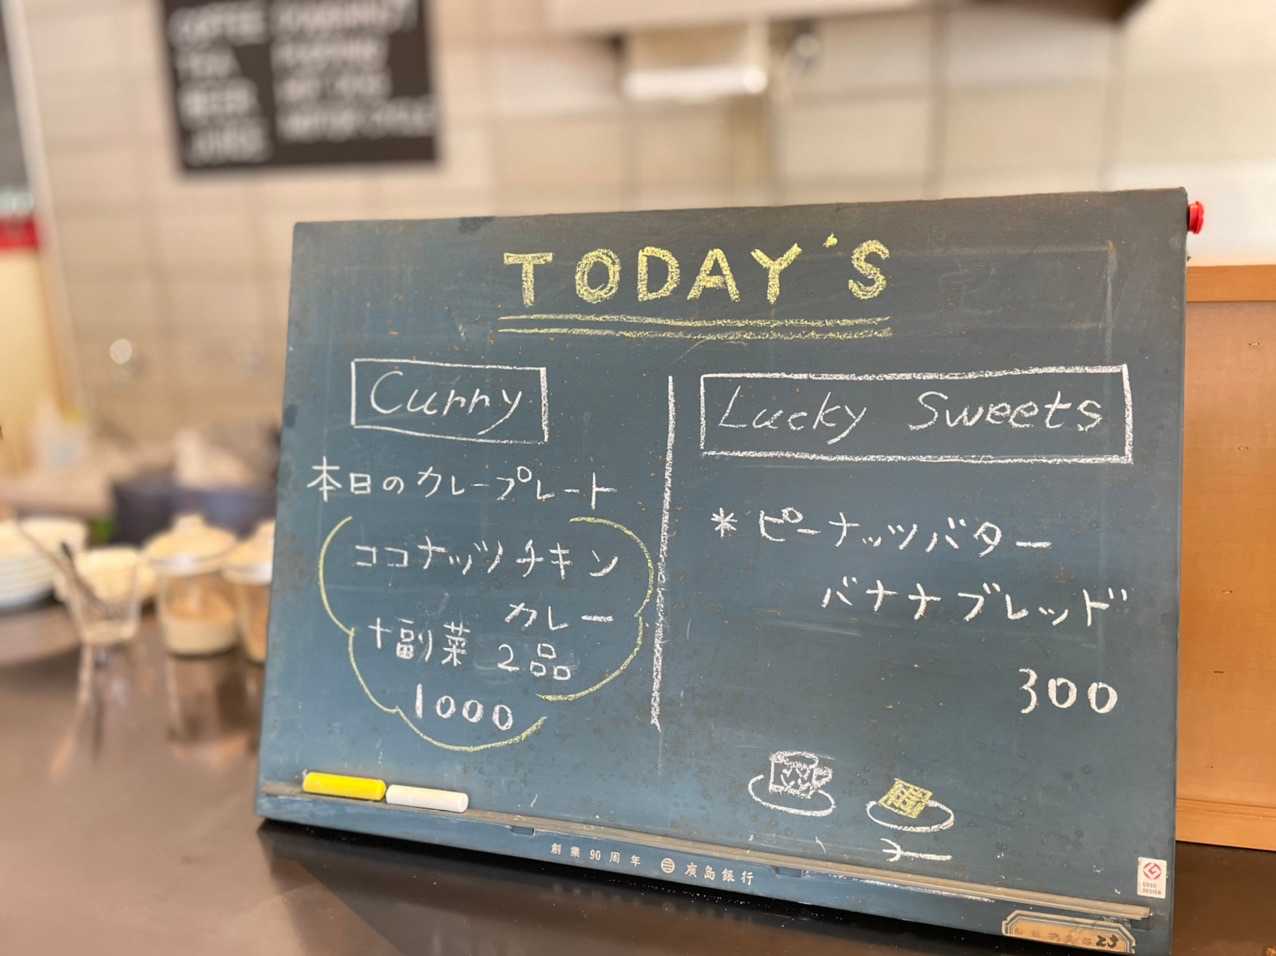 COFFEE
TEA
BEER
JUICE
TODAY'S
Curry
本日のカレープレート
ココナッツチキン
カレー
+副菜 2品
1000
Lucky Sweets
*ピーナッツバター
バナナブレッド
300
創業90周年 廣島銀行
GOOD
DESIGN